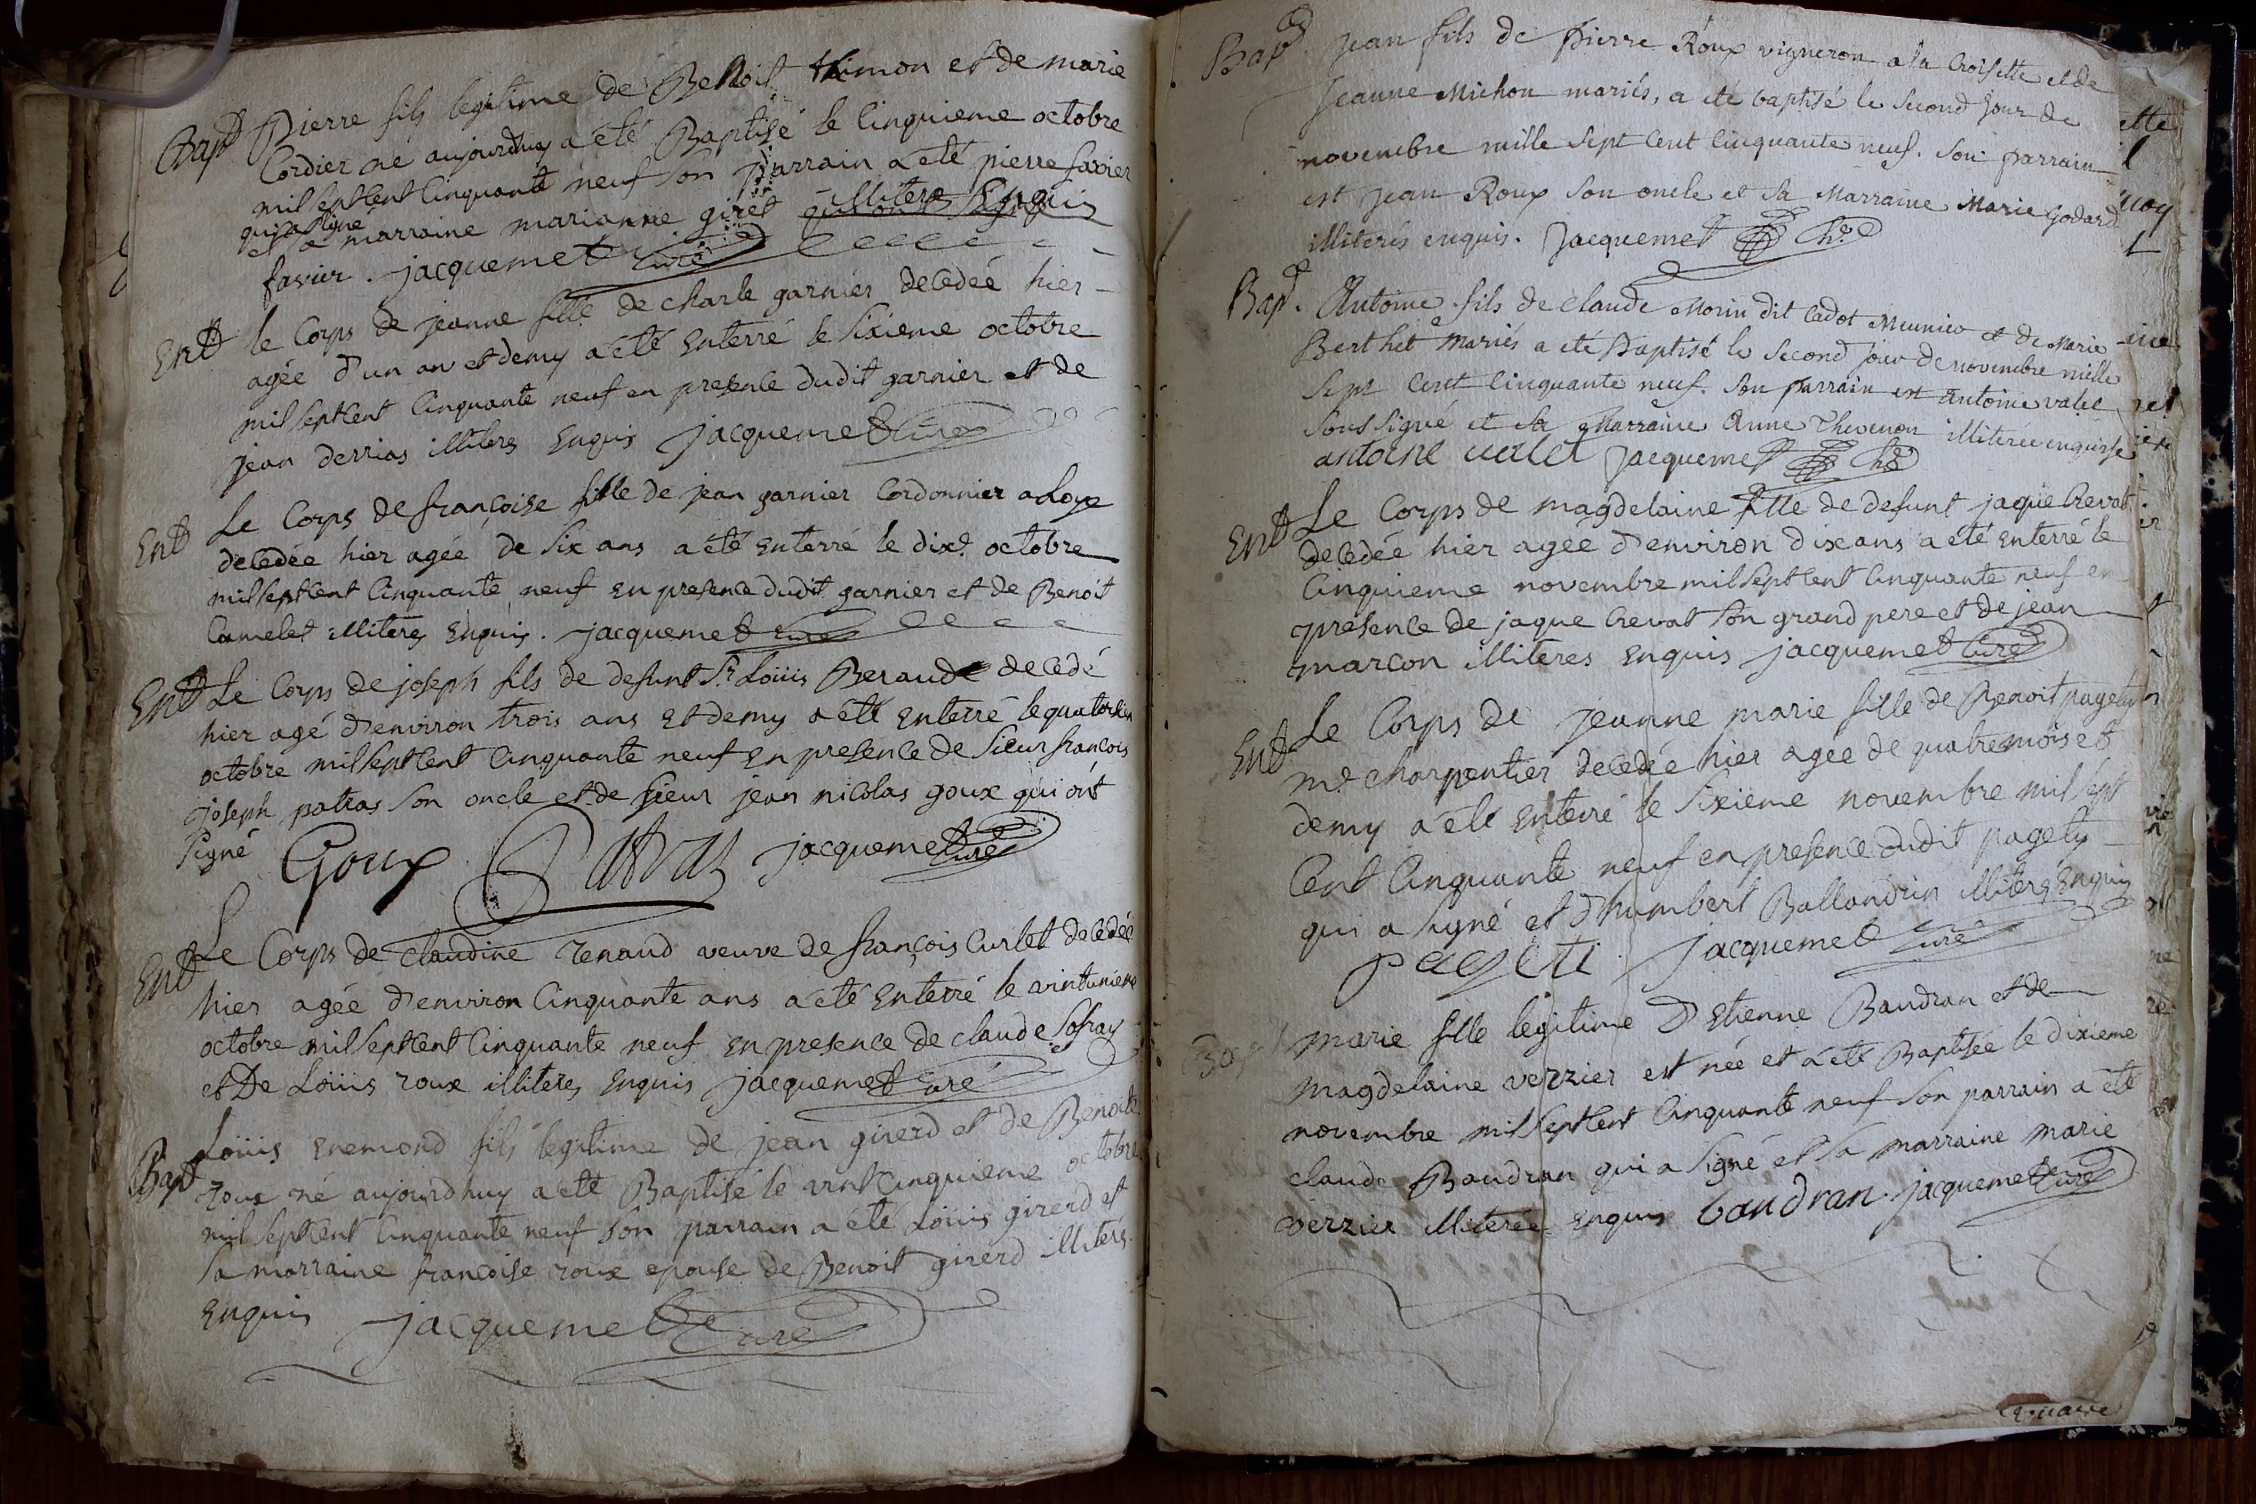 Bapt Pierre fils legitime de Benoit thimon et de marie
Cordier né aujourdhuy a été Baptisé le Cinquieme octobre
mil septcent Cinquante neuf son parrain a été pierre favier
qui a signé
et sa marraine marianne giret qui ont signé illitere Enquis
favier . jacquemet Curé
Ent le Corps de jeanne fille de charle garnier decedeé hier
agée d'un an et demy a été Enterré le sixieme octobre
mil septcent Cinquante neuf en presence dudit garnier et de
jean derrias illiteres Enquis jacquemet Curé
Ent Le Corps de françoise fille de jean garnier Cordonnier a Loye
decedée hier agée de six ans a été Enterré le dixe octobre
mil septcent Cinquante neuf en presence dudit garnier et de Benoit
Camelet illiteres Enquis . jacquemet Curé
Ent Le Corps de joseph fils de defunt Sr Loüis Beraud decedé
hier agé d'environ trois ans et demy a été Enterré le quatorzieme
octobre mil septcent Cinquante neuf en presence de sieur françois
joseph patras son oncle et de sieur jean nicolas goux qui ont
signé Goux Patras jacquemet Curé
Ent Le Corps de Claudine renaud veuve de françois Curlet decedée
hier agée d'environ Cinquante ans a été Enterré le vintunieme
octobre mil septcent Cinquante neuf en presence de claude
et De Loüis roux illiteres Enquis jacquemet Curé
Bapt Loüis Enemond fils legitime de jean girerd et de Benoite
roux né aujourdhuy a été Baptisé le vintCinquieme octobre
mil septcent Cinquante neuf son parrain a été Loüis girerd et
sa marraine françoise roux epouse de Benoit girerd illiteres
Enquis jacquemet Curé
Bap Jean fils de Pierre Roux vigneron a la Croisette et de
Jeanne Michon mariés, a été baptisé le second jour de
novembre mille sept cent cinquante neuf. son parrain
est Jean Roux son oncle et sa Marraine Marie Godard
illiterés enquis. Jacquemet
Bap. Antoine fils de Claude Morin dit Cadot Meunier et de Marie
Berthet mariés a été Baptisé le second jour de novembre mille
sept cent Cinquante neuf. son parrain est Antoine valet
sous signé et sa Marraine Anne Thevenon illiterée enquise
antoine valet Jacquemet
Ent Le Corps de magdelaine fille de defunt jaque Crevat
decedée hier agée d'environ dix ans a été Enterré le
Cinquieme novembre mil septcent Cinquante neuf en
presence de jaque Crevat son grand pere et de jean
marcon illiteres Enquis jacquemet Curé
Ent Le Corps de jeanne marie fille de Benoit pagety
me charpentier decedée hier agée de quatre mois et
demy a été Enterré le sixieme novembre mil sept
Cent Cinquante neuf en presence dudit pagety
qui a signé et d'humbert Ballandrin illitere Enquis
pageti jacquemet Curé
Bapt marie fille legitime D'Etienne Baudran et de
magdelaine verzier est née et a été Baptisée le dixieme
novembre mil septcent Cinquante neuf son parrain a été
claude Baudran qui a signé et sa marraine marie
verzier illiterée Enquis baudran . jacquemet Curé